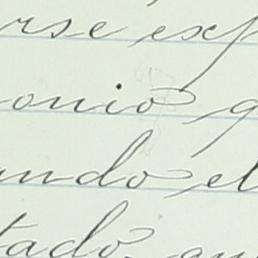 rse exp
onio q
ando el
tado